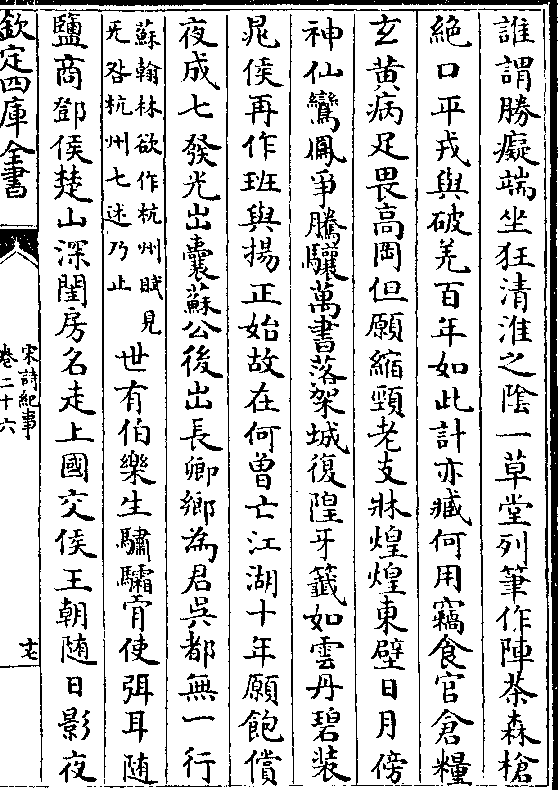 誰謂勝癡端坐狂清淮之陰一草堂列筆作陣茶森槍
絶口平戎與破羌百年如此計亦臧何用竊食官倉糧
玄黄病足畏高岡但願縮頸老支牀煌煌東壁日月傍
神仙鸞鳳爭騰驤萬書落架城復隍牙籤如雲丹碧装
晁侯再作班與揚正始故在何曽亡江湖十年願飽償
夜成七發光出囊蘇公後出長卿鄉為君吳都無一行
蘇翰林欲作杭州賦見
旡咎杭州七述乃止
世有伯樂生驌驦肯使弭耳随
鹽商鄧侯楚山深閨房名走上國交侯王朝随日影夜
欽定四庫全書
宋詩紀事
卷二十六
十七